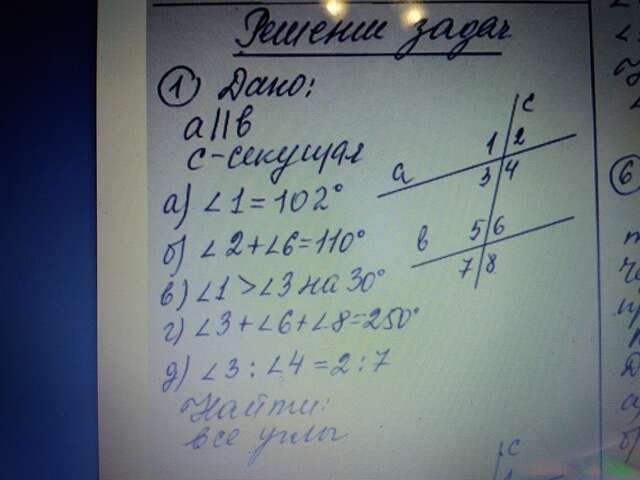 Решение задач
1 Дано:
a || b
c - секущая
а) ∠1 = 102°
б) ∠2 + ∠6 = 110°
в) ∠1 > ∠3 на 30°
г) ∠3 + ∠6 + ∠8 = 250°
д) ∠3 : ∠4 = 2 : 7
Найти:
все углы
c
1 2
a 3 4
b 5 6
7 8
6
c